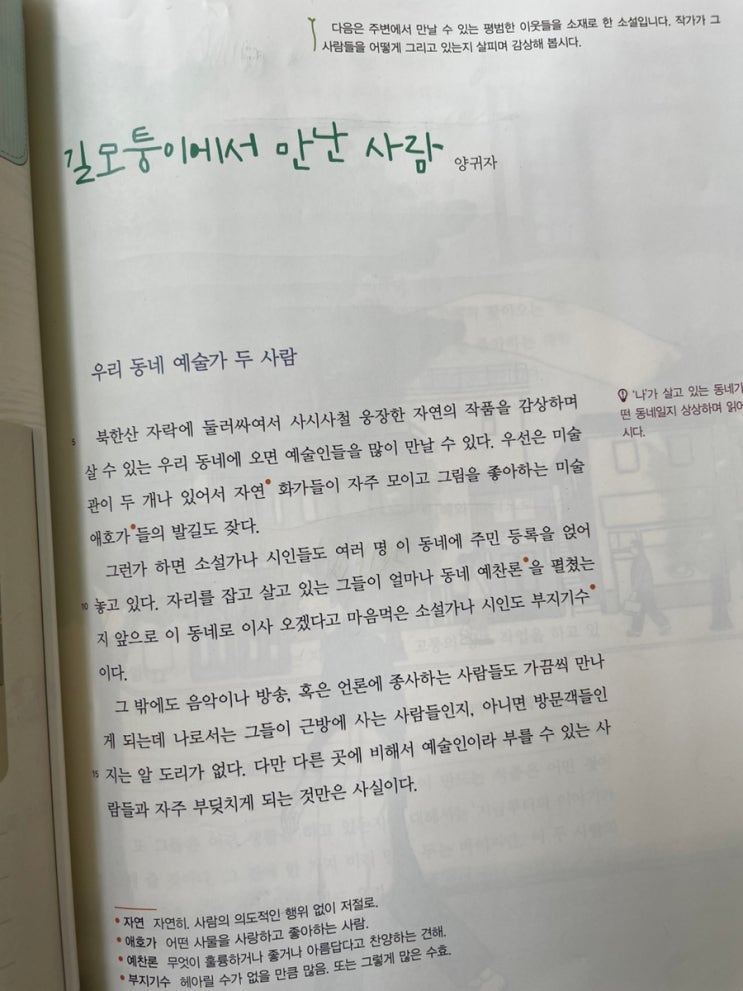 다음은 주변에서 만날 수 있는 평범한 이웃들을 소재로 한 소설입니다. 작가가 그
사람들을 어떻게 그리고 있는지 살피며 감상해 봅시다.
길모퉁이에서 만난 사람 양귀자
우리 동네 예술가 두 사람
5 북한산 자락에 둘러싸여서 사시사철 웅장한 자연의 작품을 감상하며
살 수 있는 우리 동네에 오면 예술인들을 많이 만날 수 있다. 우선은 미술
관이 두 개나 있어서 자연• 화가들이 자주 모이고 그림을 좋아하는 미술
애호가•들의 발길도 잦다.
그런가 하면 소설가나 시인들도 여러 명 이 동네에 주민 등록을 얹어
10 놓고 있다. 자리를 잡고 살고 있는 그들이 얼마나 동네 예찬론•을 펼쳤는
지 앞으로 이 동네로 이사 오겠다고 마음먹은 소설가나 시인도 부지기수•
이다.
그 밖에도 음악이나 방송, 혹은 언론에 종사하는 사람들도 가끔씩 만나
게 되는데 나로서는 그들이 근방에 사는 사람들인지, 아니면 방문객들인
15 지는 알 도리가 없다. 다만 다른 곳에 비해서 예술인이라 부를 수 있는 사
람들과 자주 부딪치게 되는 것만은 사실이다.
'나'가 살고 있는 동네가
떤 동네일지 상상하며 읽어
시다.
• 자연 자연히. 사람의 의도적인 행위 없이 저절로.
• 애호가 어떤 사물을 사랑하고 좋아하는 사람.
• 예찬론 무엇이 훌륭하거나 좋거나 아름답다고 찬양하는 견해.
• 부지기수 헤아릴 수가 없을 만큼 많음. 또는 그렇게 많은 수효.